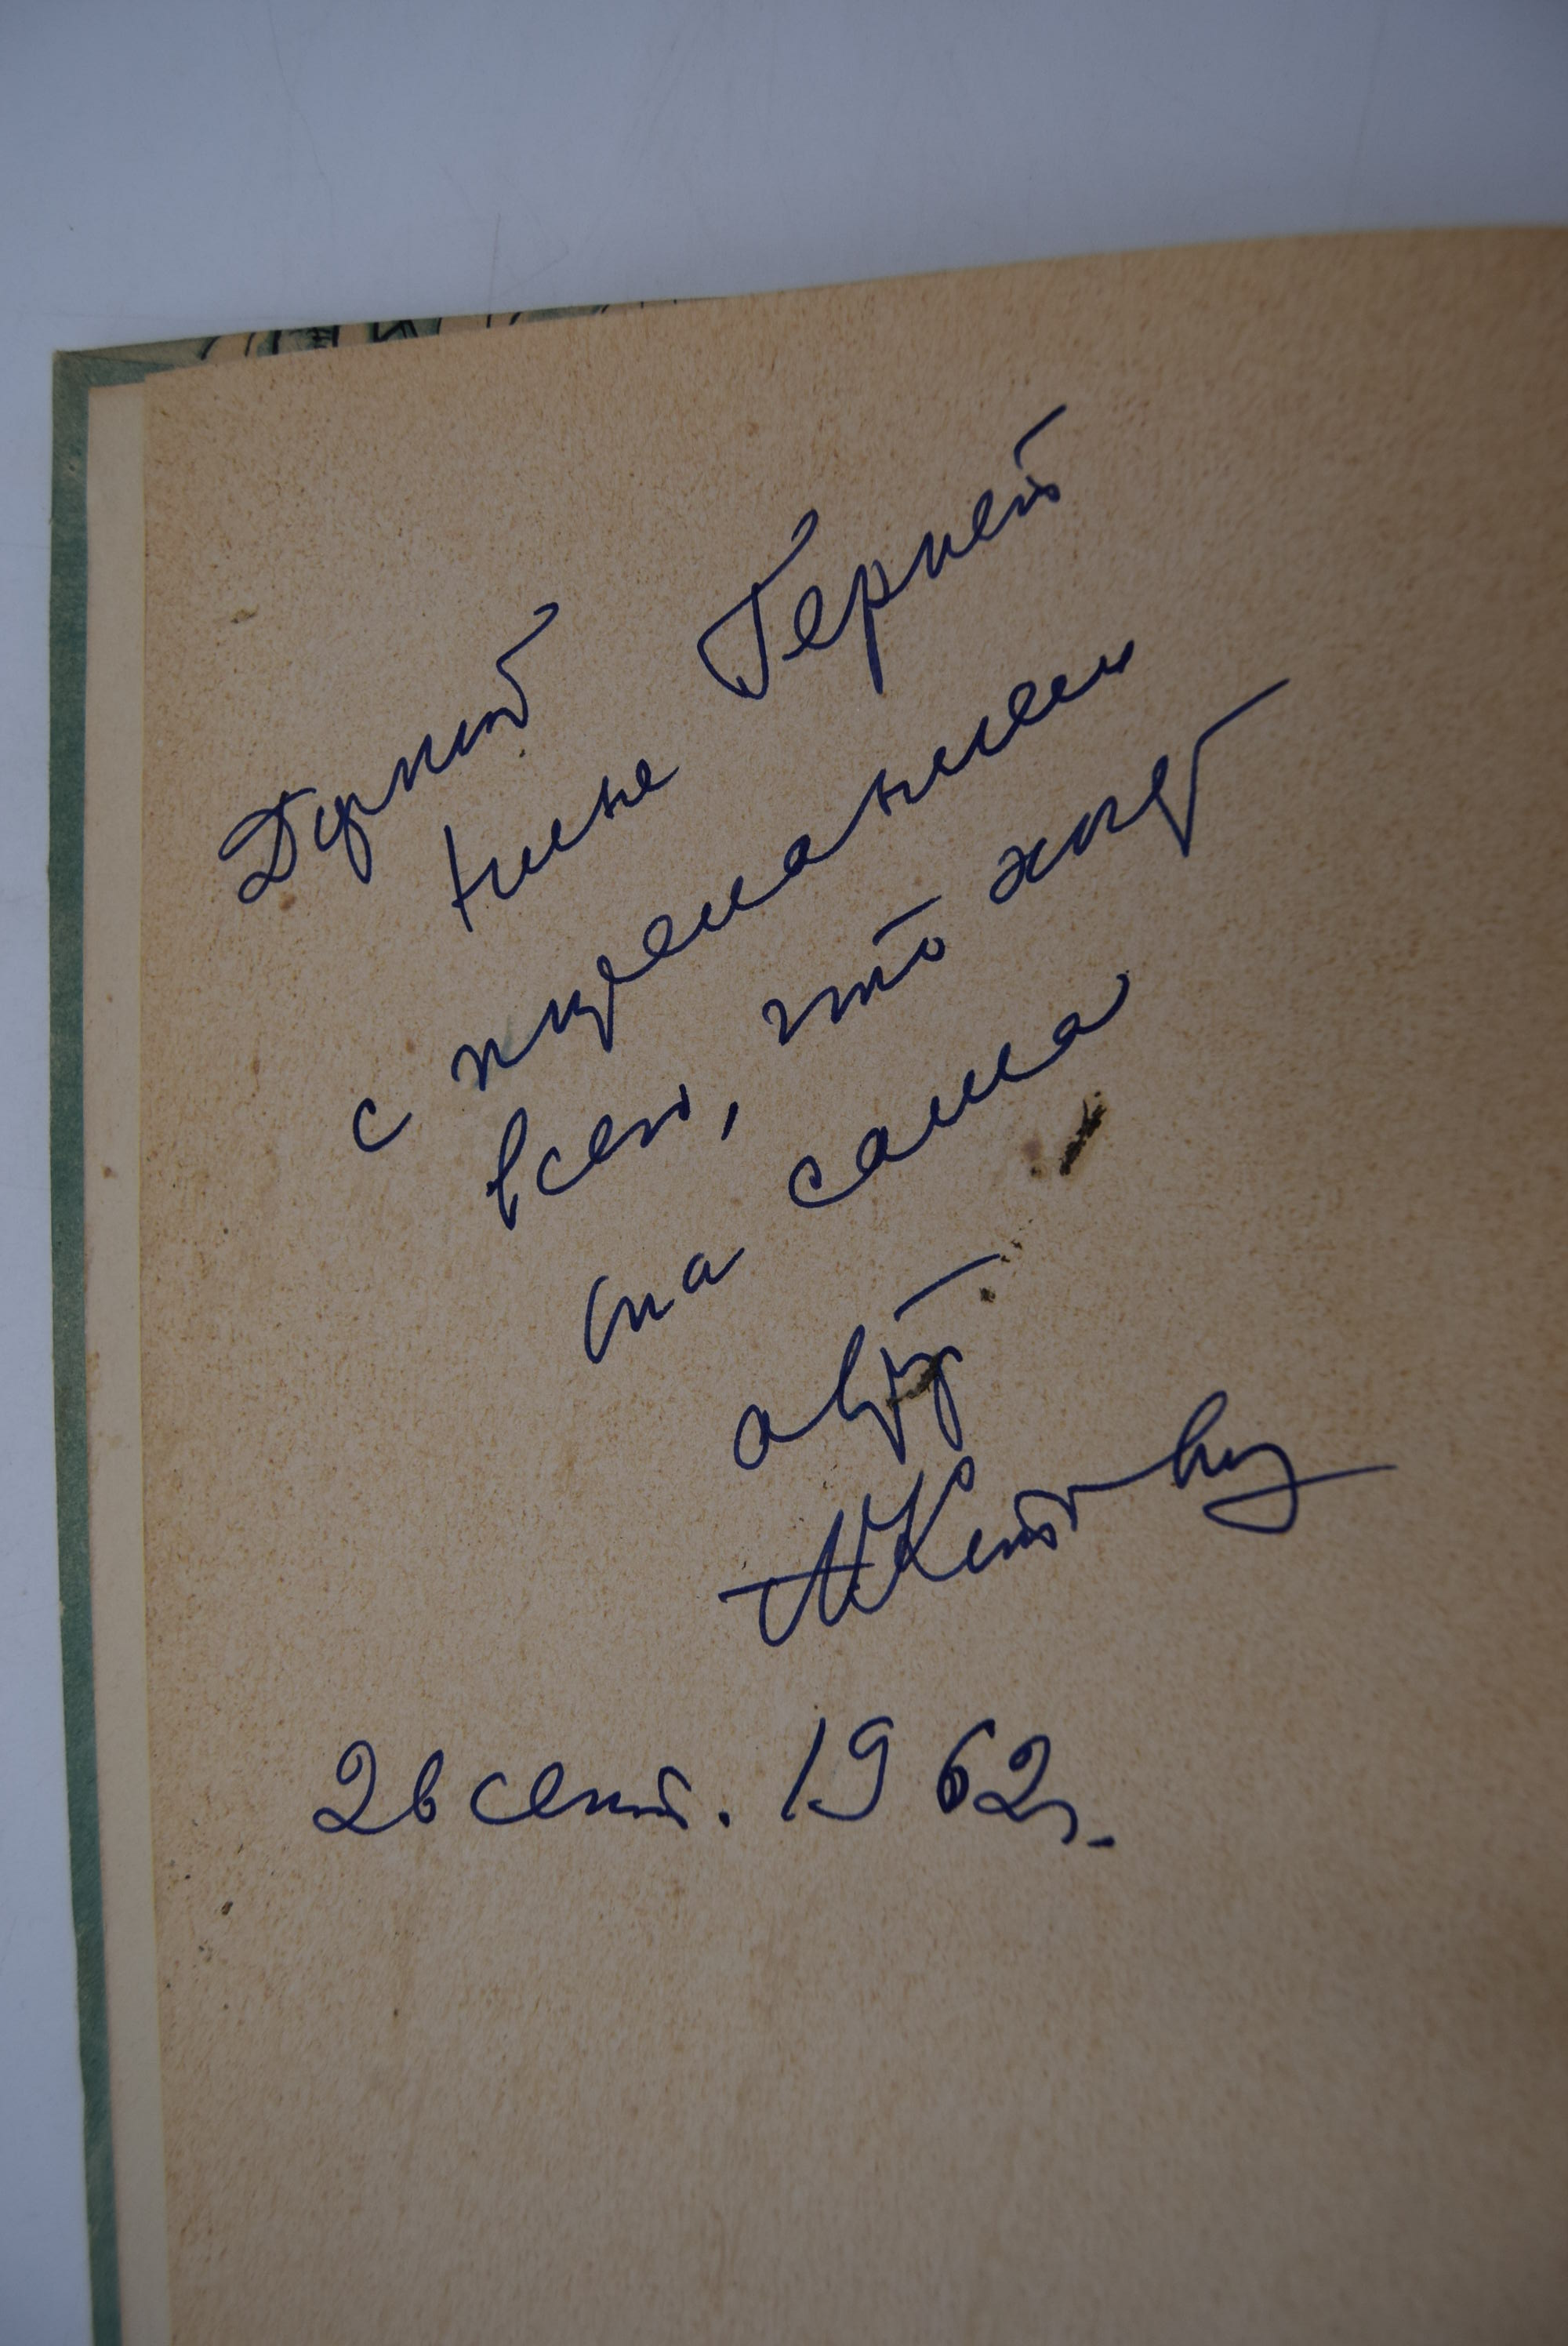 Дорогой Гернет
Нине
с пожеланием
всего, что хочет
она сама
автор
26 сент. 1962г.